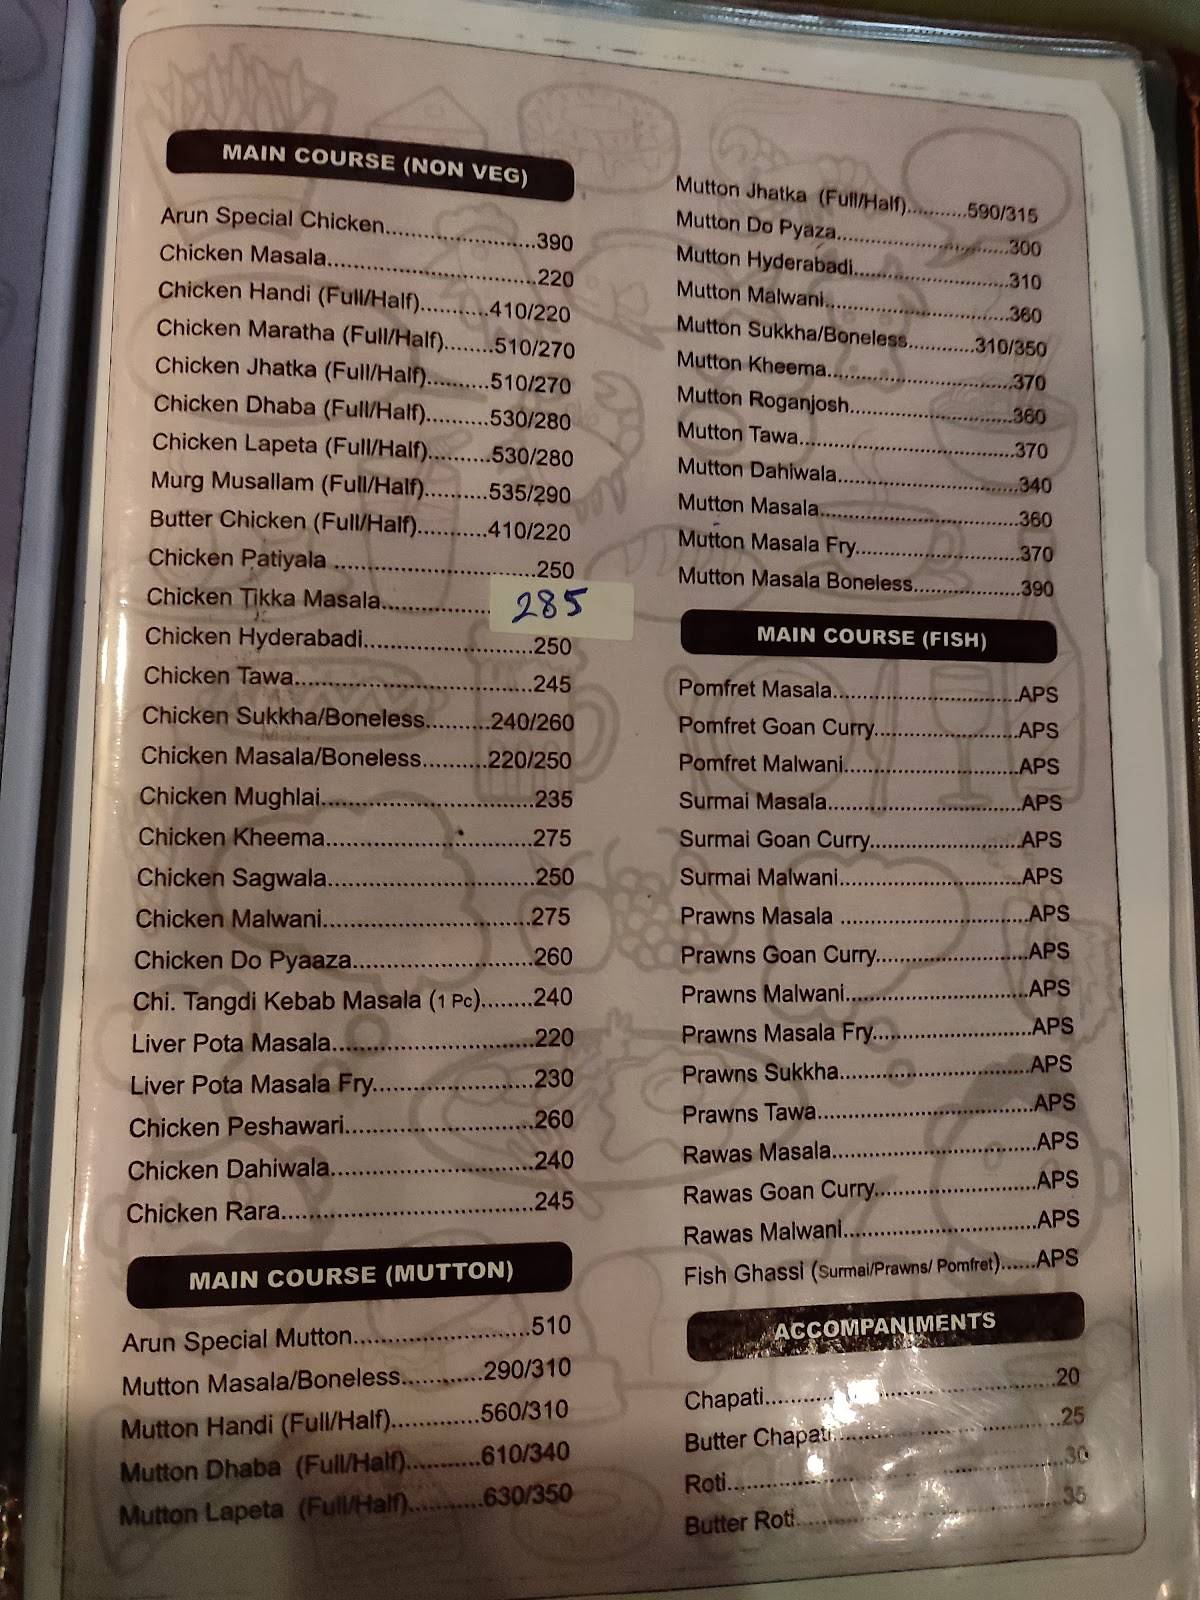 MAIN COURSE (NON VEG)
Arun Special Chicken..................390
Chicken Masala..........................220
Chicken Handi (Full/Half).........410/220
Chicken Maratha (Full/Half).......510/270
Chicken Jhatka (Full/Half).........510/270
Chicken Dhaba (Full/Half).........530/280
Chicken Lapeta (Full/Half).........530/280
Murg Musallam (Full/Half).........535/290
Butter Chicken (Full/Half)..........410/220
Chicken Patiyala .........................250
Chicken Tikka Masala.............. 285
Chicken Hyderabadi.....................250
Chicken Tawa.............................245
Chicken Sukkha/Boneless.........240/260
Chicken Masala/Boneless.........220/250
Chicken Mughlai..........................235
Chicken Kheema.........................275
Chicken Sagwala.........................250
Chicken Malwani.........................275
Chicken Do Pyaaza.....................260
Chi. Tangdi Kebab Masala (1 Pc).......240
Liver Pota Masala........................220
Liver Pota Masala Fry..................230
Chicken Peshawari......................260
Chicken Dahiwala........................240
Chicken Rara..............................245
MAIN COURSE (MUTTON)
Arun Special Mutton....................510
Mutton Masala/Boneless...........290/310
Mutton Handi (Full/Half)............560/310
Mutton Dhaba (Full/Half)..........610/340
Mutton Lapeta (Full/Half)..........630/350
Mutton Jhatka (Full/Half)..........590/315
Mutton Do Pyaza........................300
Mutton Hyderabadi......................310
Mutton Malwani..........................360
Mutton Sukkha/Boneless...........310/350
Mutton Kheema..........................370
Mutton Roganjosh.......................360
Mutton Tawa..............................370
Mutton Dahiwala.........................340
Mutton Masala...........................360
Mutton Masala Fry......................370
Mutton Masala Boneless..............390
MAIN COURSE (FISH)
Pomfret Masala..........................APS
Pomfret Goan Curry....................APS
Pomfret Malwani.........................APS
Surmai Masala...........................APS
Surmai Goan Curry.....................APS
Surmai Malwani..........................APS
Prawns Masala ..........................APS
Prawns Goan Curry.....................APS
Prawns Malwani.........................APS
Prawns Masala Fry.....................APS
Prawns Sukkha..........................APS
Prawns Tawa.............................APS
Rawas Masala............................APS
Rawas Goan Curry......................APS
Rawas Malwani..........................APS
Fish Ghassi (Surmai/Prawns/ Pomfret)......APS
ACCOMPANIMENTS
Chapati....................................20
Butter Chapati............................25
Roti.........................................30
Butter Roti................................35